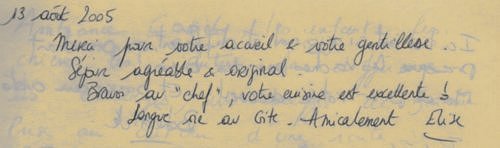 13 août 2005
Merci pour votre accueil & votre gentillesse.
Séjour agréable & original.
Bravo au "chef", votre cuisine est excellente !
Longue vie au Gîte. Amicalement